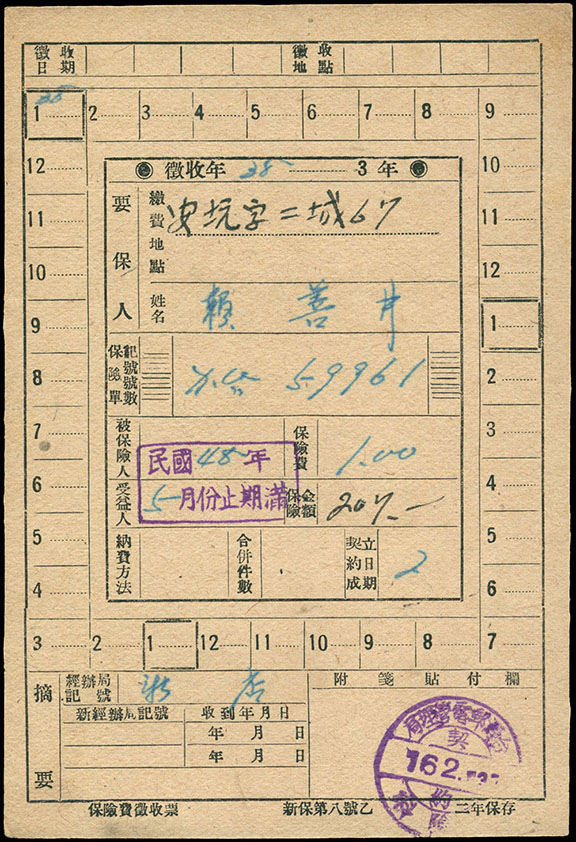 徵收日期
徵收地點
1 2 3 4 5 6 7 8 9
28
12 10
11 11
10 12
9 1
8 2
7 3
6 4
5 5
4 6
3 2 1 12 11 10 9 8 7
徵收年 28 3年
要保人
繳費地點
安坑字二城67
姓名
賴善井
保險單記號號數
59961
被保險人
受益人
民國48年
5月份止期滿
保險費
1.00
保險金額
207.-
納費方法
合併件數
契約成立日期
2
摘要
經辦局記號
新店
新經辦局記號
收到年月日
年 月 日
年 月 日
附箋貼付欄
契
16.2.
約
險
保險費徵收票
新保第八號乙
三年保存